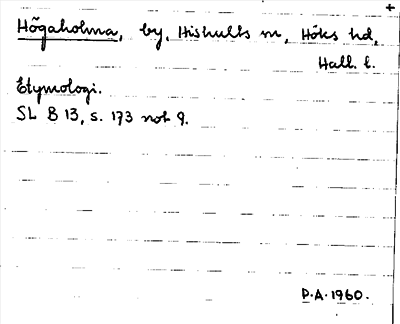 +
Högaholma, by, Hishults sn, Höks hd,
Hall. l.
Etymologi.
SL B 13, s. 173 not 9.
P.A. 1960.